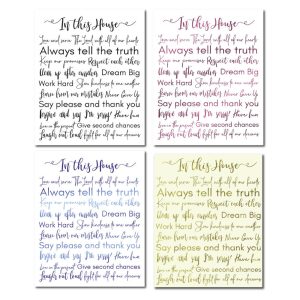 In this House
Love and serve The Lord with all of our hearts
Always tell the truth
Keep our promises Respect each other
Clean up after ourselves Dream Big
Work Hard Show kindness to one another
Learn from our mistakes Never Give Up
Say please and thank you
Forgive and say I'm sorry! Have
Live in the present Give second chances
Laugh out loud fight for all of our dreams
In this House
Love and serve The Lord with all of our hearts
Always tell the truth
Keep our promises Respect each other
Clean up after ourselves Dream Big
Work Hard Show kindness to one another
Learn from our mistakes Never Give Up
Say please and thank you
Forgive and say I'm sorry! Have
Live in the present Give second chances
Laugh out loud fight for all of our dreams
In this House
Love and serve The Lord with all of our hearts
Always tell the truth
Keep our promises Respect each other
Clean up after ourselves Dream Big
Work Hard Show kindness to one another
Learn from our mistakes Never Give Up
Say please and thank you
Forgive and say I'm sorry! Have
Live in the present Give second chances
Laugh out loud fight for all of our dreams
In this House
Love and serve The Lord with all of our hearts
Always tell the truth
Keep our promises Respect each other
Clean up after ourselves Dream Big
Work Hard Show kindness to one another
Learn from our mistakes Never Give Up
Say please and thank you
Forgive and say I'm sorry! Have
Live in the present Give second chances
Laugh out loud fight for all of our dreams